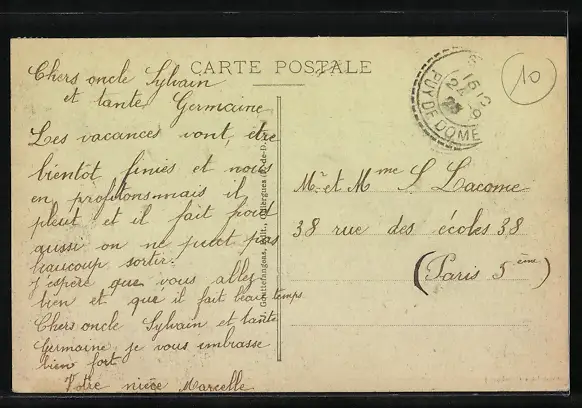 CARTE POSTALE
Chers oncle Sylvain
et tante Germaine
Les vacances vont être
bientôt finies et nous
en profitons mais il
pleut et il fait froid
aussi on ne peut pas
beaucoup sortir.
J'espère que vous allez
bien et que il fait beau temps
Chers oncle Sylvain et tante
Germaine je vous embrasse
bien fort.
Votre nièce Marcelle
Mr et Mme S Lacome
38 rue des écoles 38
(Paris 5ème)
PUY DE DOME
10